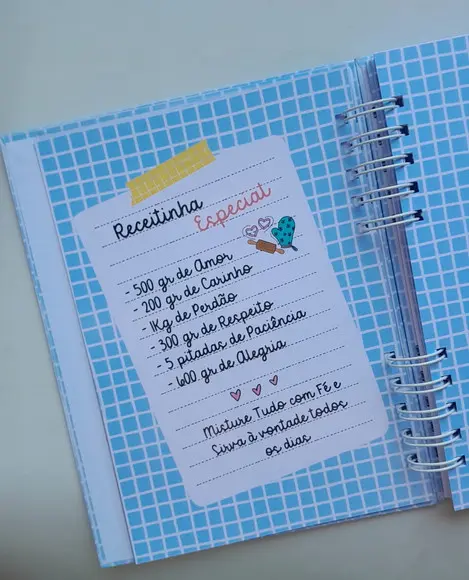 Receitinha
Especial
- 500 gr de Amor
- 200 gr de Carinho
- 1Kg de Perdão
- 300 gr de Respeito
- 5 pitadas de Paciência
- 600 gr de Alegria
Misture Tudo com Fé e
Sirva à vontade todos
os dias